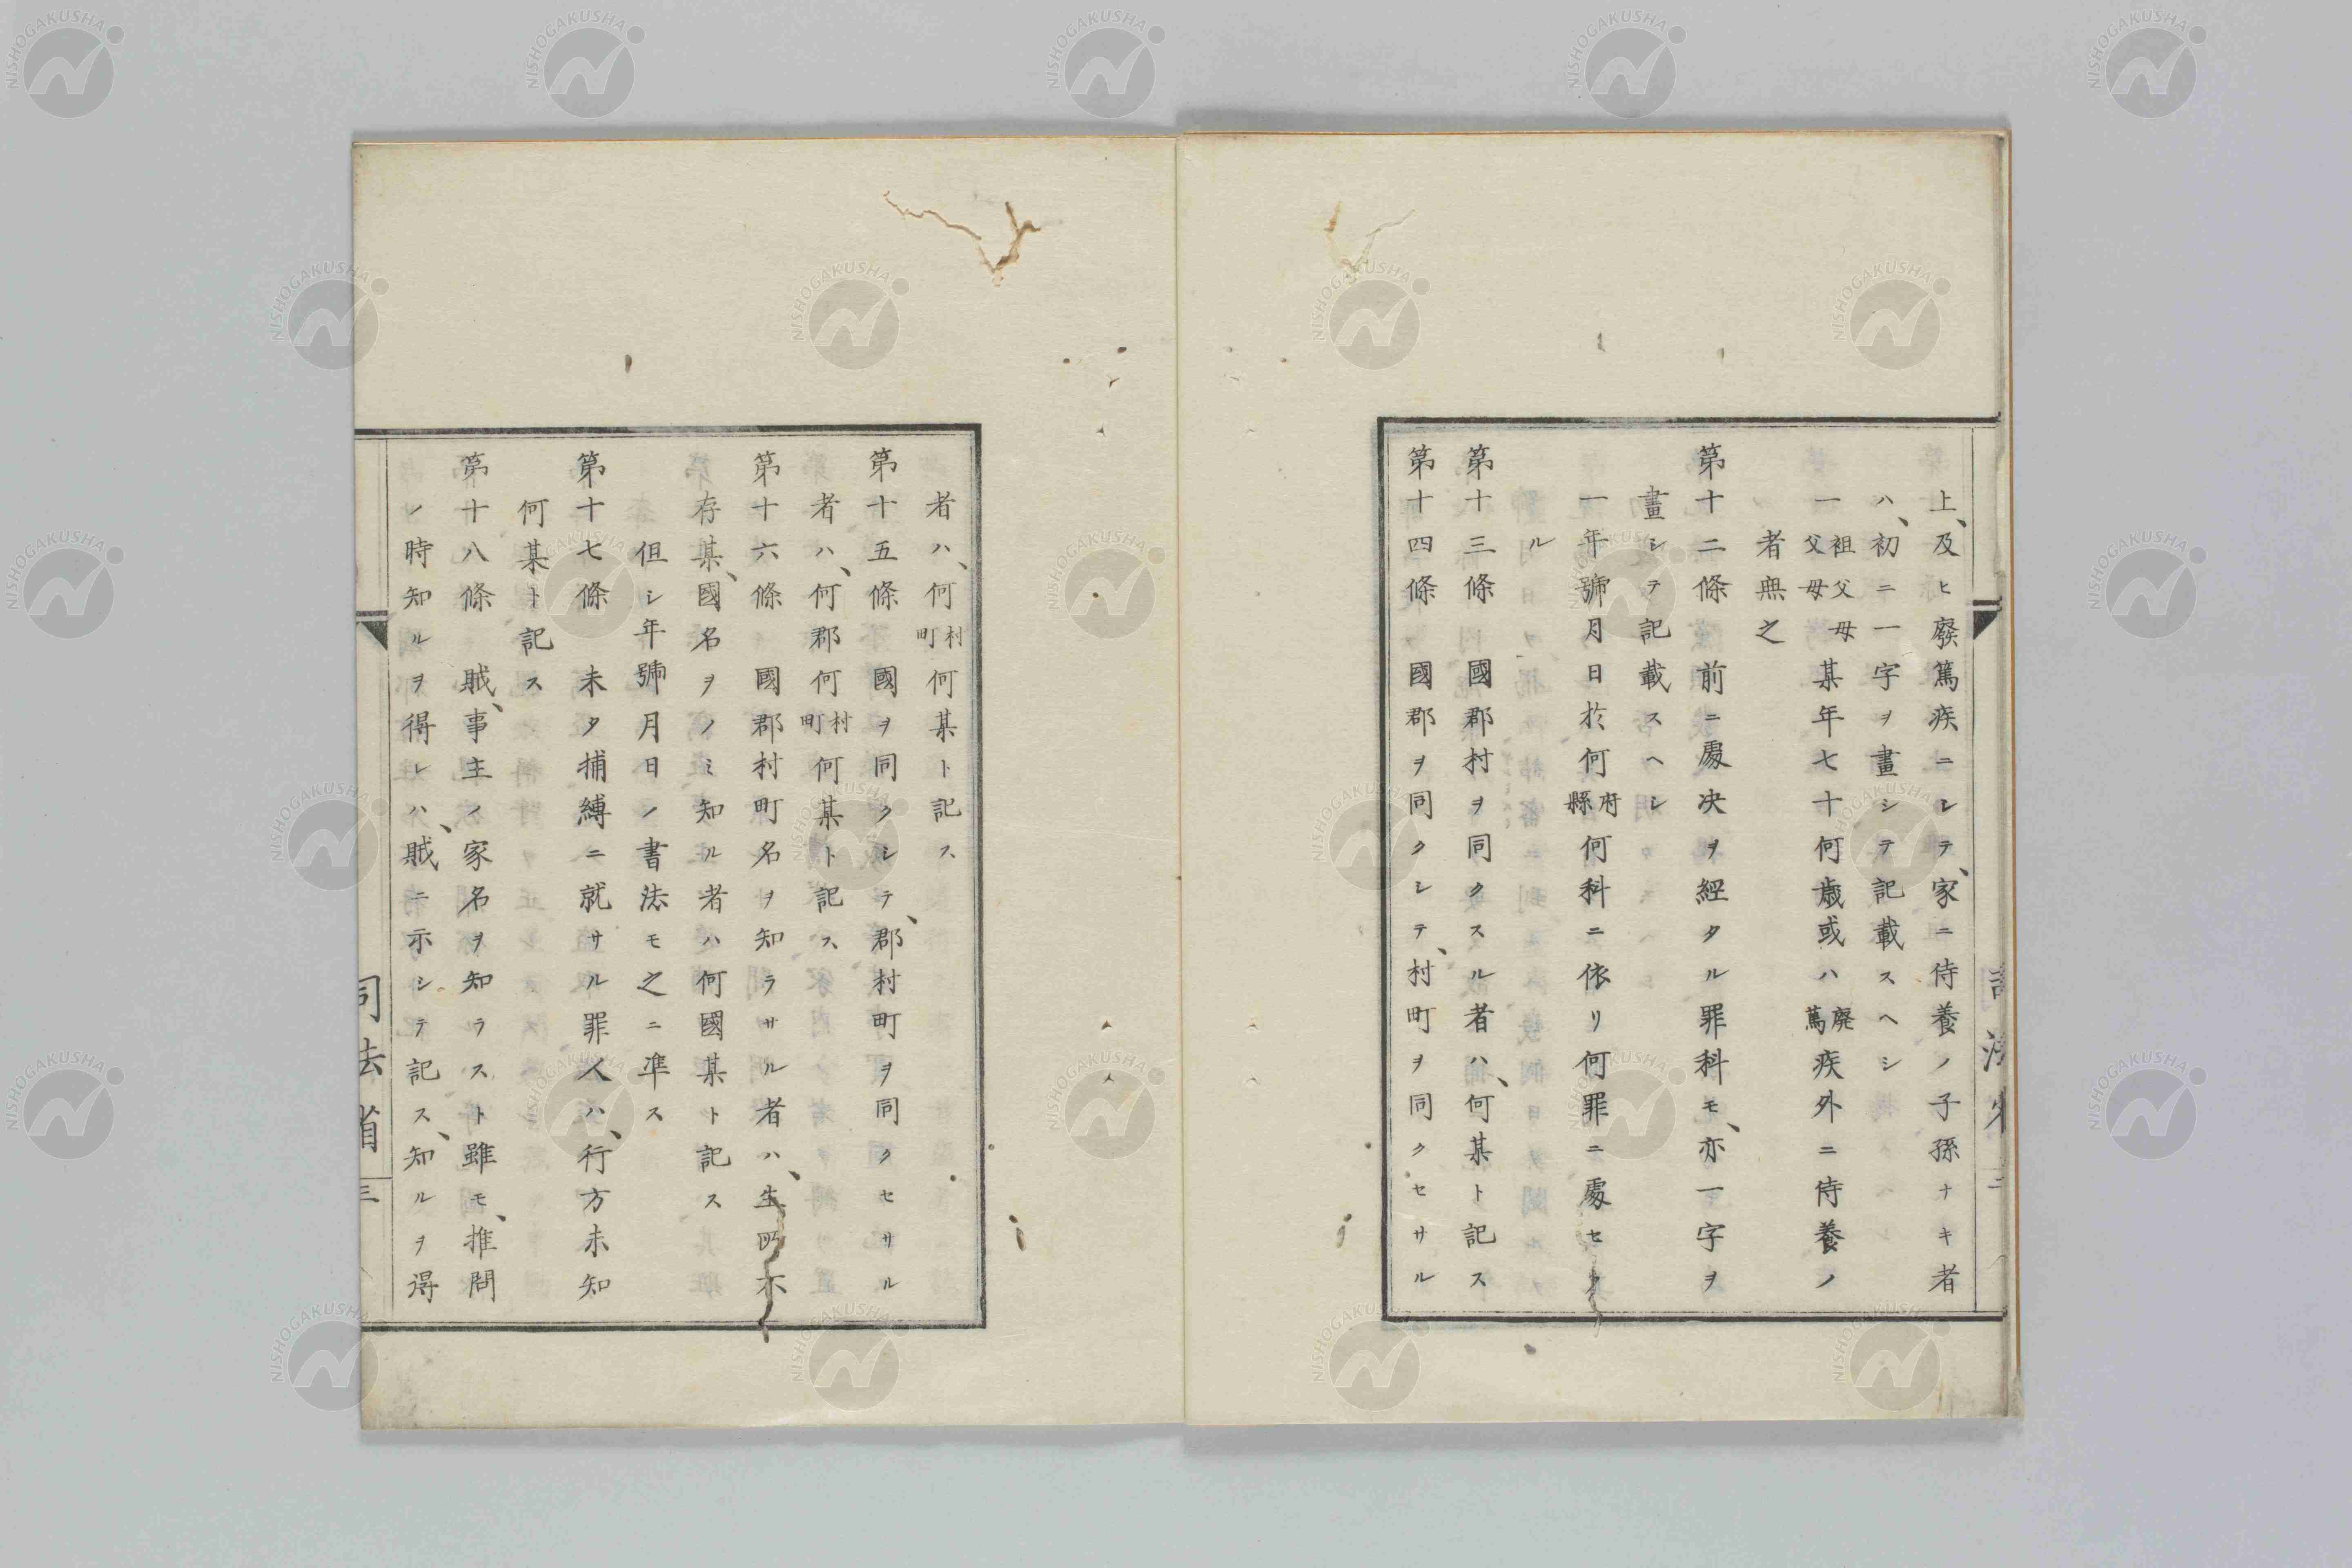 上、及ヒ癈篤疾ニシテ、家ニ侍養ノ子孫ナキ者
ハ、初ニ一字ヲ畫シテ記載スヘシ
一祖父母父母某年七十何歳或ハ廢篤疾外ニ侍養ノ
者無之
第十二條 前ニ處决ヲ經タル罪科モ、亦一字ヲ
畫シテ記載スヘシ
一年號月日於何府縣何科ニ依リ何罪ニ處セラ
ル
第十三條 國郡村ヲ同クスル者ハ、何某ト記ス
第十四條 國郡ヲ同クシテ、村町ヲ同クセサル
者ハ、何村町何某ト記ス
第十五條 國ヲ同クシテ、郡村町ヲ同クセサル
者ハ、何郡何村町何某ト記ス
第十六條 國郡村町名ヲ知ラサル者ハ、生所亦
存某、國名ヲノミ知ル者ハ何國某ト記ス
但シ年號月日ノ書法モ之ニ凖ス
第十七條 未タ捕縛ニ就サル罪人ハ、行方未知
何某ト記ス
第十八條 賊、事主ノ家名ヲ知ラスト雖モ、推問
ノ時知ルヲ得レハ、賊ニ示シテ記ス、知ルヲ得
司法省
三
NISHOGAKUSHA